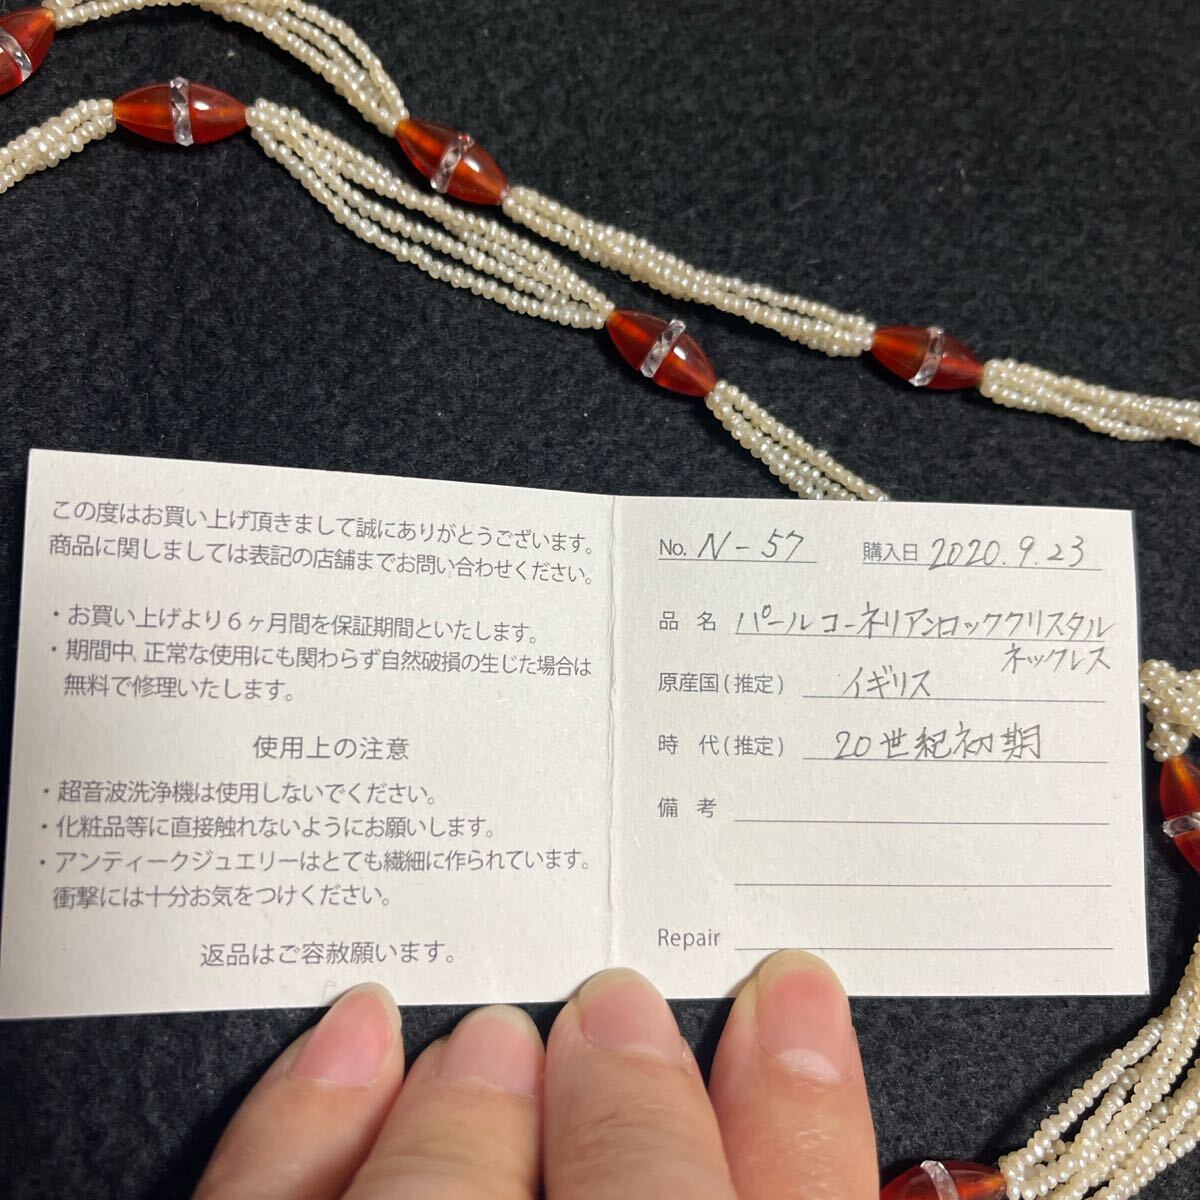 この度はお買い上げ頂きまして誠にありがとうございます。
商品に関しましては表記の店舗までお問い合わせください。
・お買い上げより6ヶ月間を保証期間といたします。
・期間中、正常な使用にも関わらず自然破損の生じた場合は
無料で修理いたします。
使用上の注意
・超音波洗浄機は使用しないでください。
・化粧品等に直接触れないようにお願いします。
・アンティークジュエリーはとても繊細に作られています。
衝撃には十分お気をつけください。
返品はご容赦願います。
No. N-57 購入日 2020.9.23
品名 パールコーネリアンロッククリスタル
ネックレス
原産国(推定) イギリス
時代(推定) 20世紀初期
備考
Repair